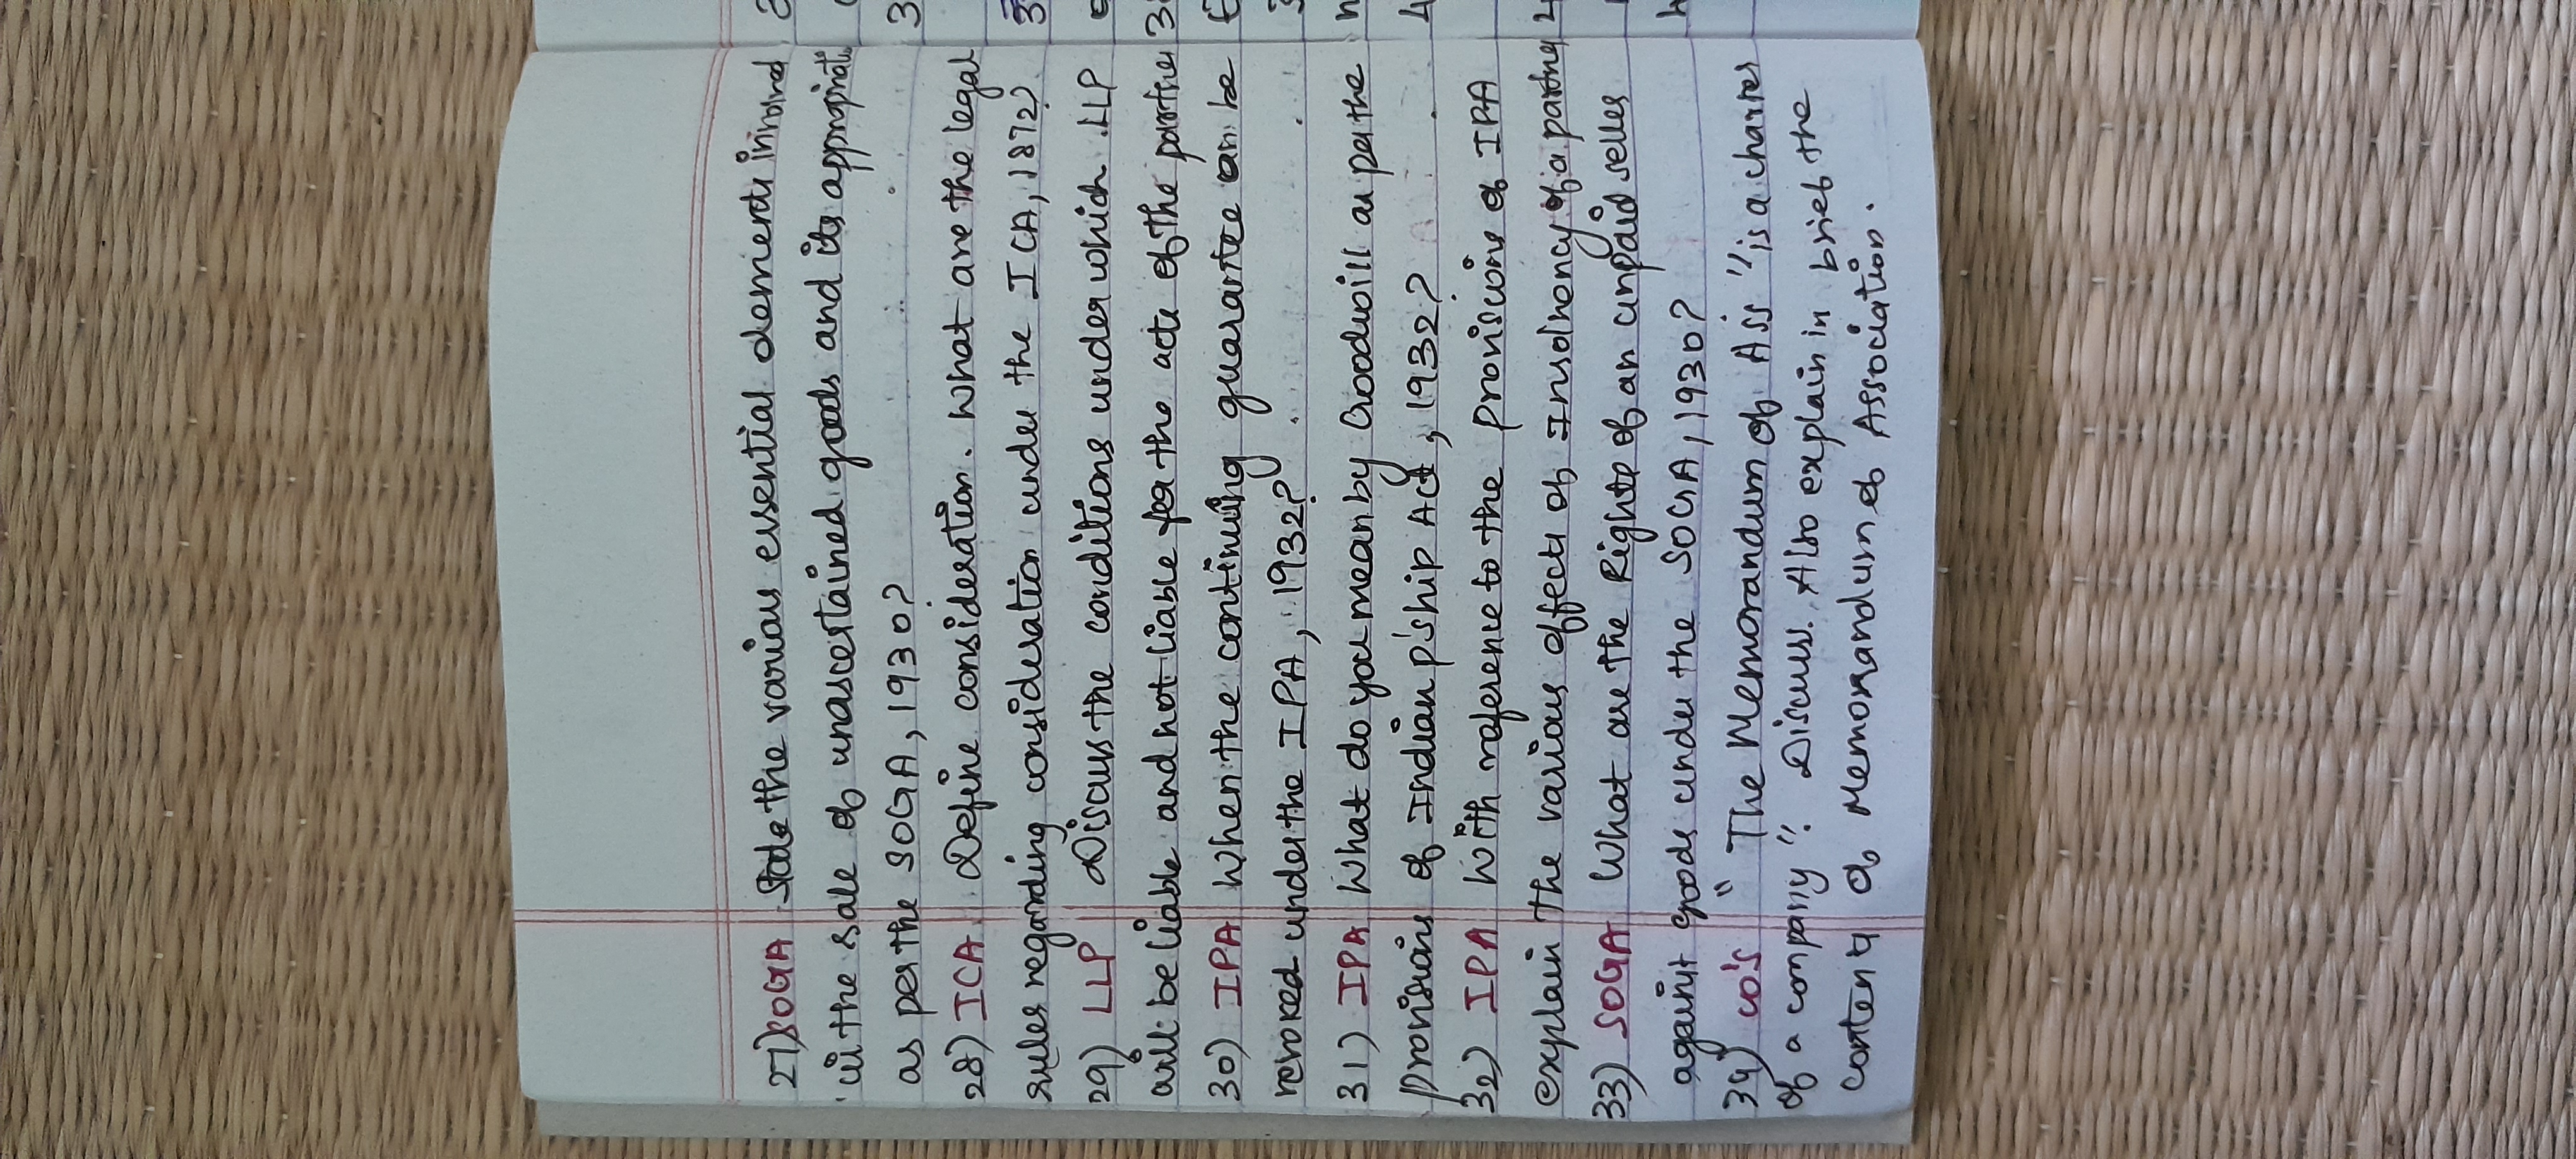 27) SOGA State the various essential elements involved
in the sale of unascertained goods and its appropriatn
as per the SOGA, 1930?
28) ICA. Define consideration. What are the legal
rules regarding consideration under the ICA, 1872?
29) LLP Discuss the conditions under which LLP
will be liable and not liable for the acts of the partner
30) IPA When the continuing guarantee can be
revoked under the IPA, 1932?
31) IPA What do you mean by Goodwill as per the
provisions of Indian p'ship Act, 1932?
32) IPA With reference to the provisions of IPA
explain the various effects of Insolvency of a partner
33) SOGA What are the Rights of an unpaid seller
against goods under the SOGA, 1930?
34) co's " The Memorandum of Ass " is a charter
of a company". Discuss. Also explain in brief the
content of Memorandum of Association.